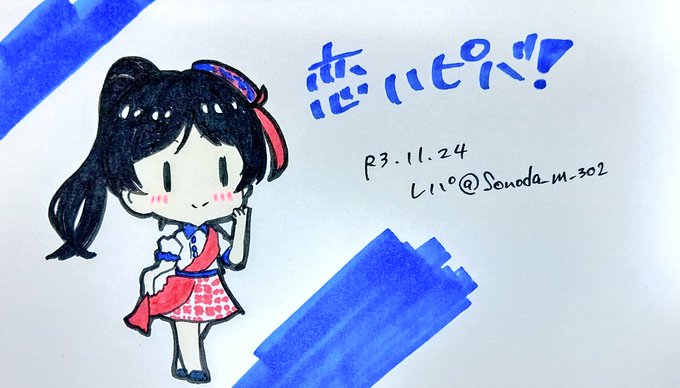 恋ハピバ!
R3.11.24
レパ@Sonoda_m_302